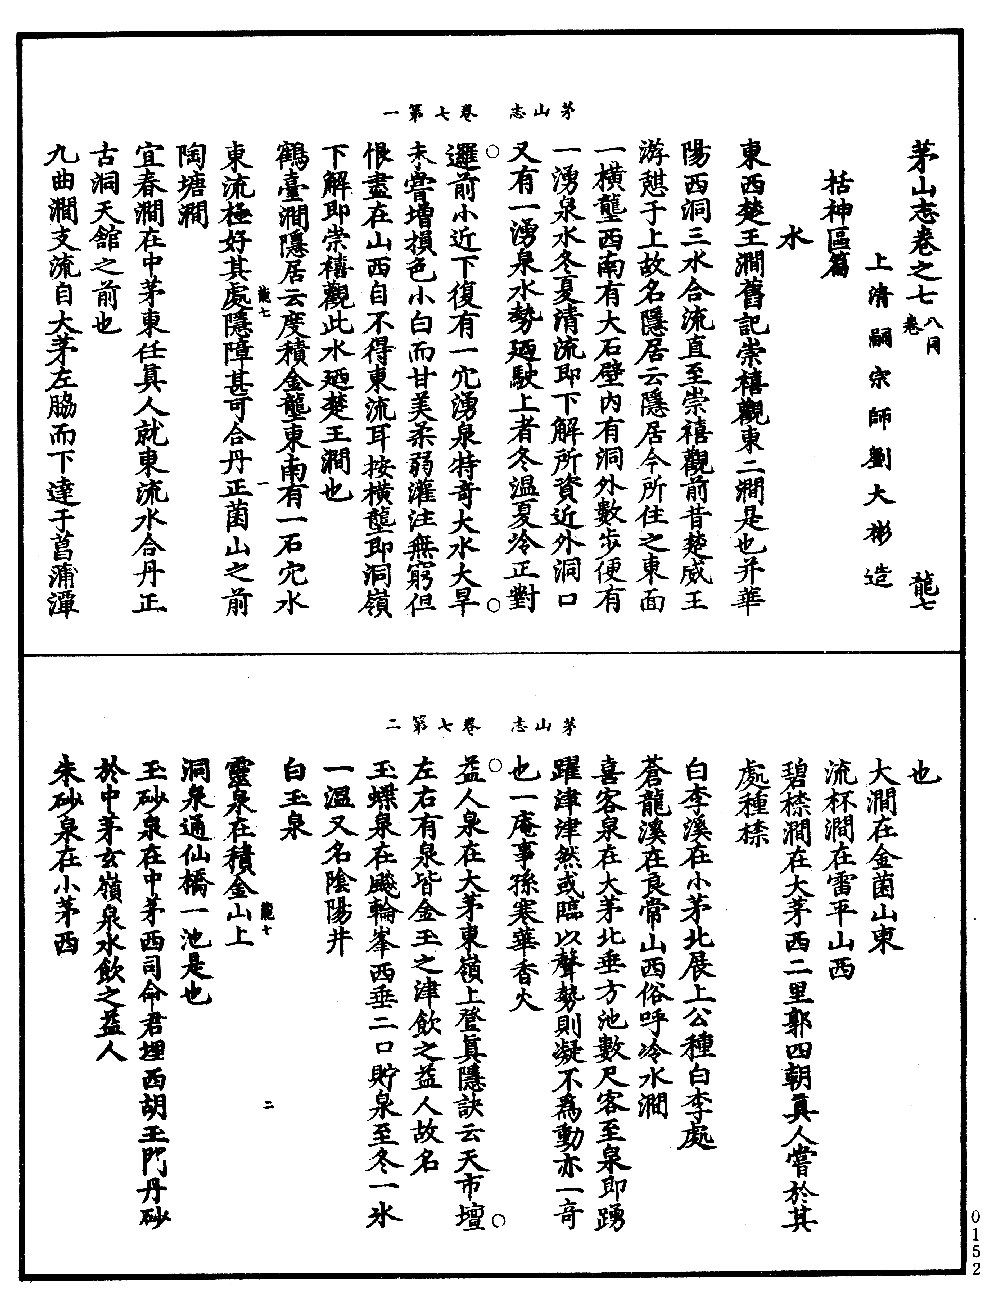 茅山志　卷七第一
茅山志卷之七　八同卷　龍七
上清嗣宗師劉大彬造
括神區篇
水
東西楚王澗舊記崇禧觀東二澗是也并華
陽西洞三水合流直至崇禧觀前昔楚威王
游憇于上故名隱居云隱居今所住之東面
一橫壟西南有大石壁內有洞外數步便有
一湧泉水冬夏清流即下解所資近外洞口
又有一湧泉水勢廼駛上者冬温夏冷正對
邏前小近下復有一穴湧泉特奇大水大旱
未嘗增損色小白而甘美柔弱灌注無窮但
恨盡在山西自不得東流耳按橫壟即洞嶺
下解即崇禧觀此水廼楚王澗也
鶴臺澗隱居云度積金壟東南有一石穴水
龍七　一
東流極好其處隱障甚可合丹正菌山之前
陶塘澗
宜春澗在中茅東任真人就東流水合丹正
古洞天館之前也
九曲澗支流自大茅左脇而下達于菖蒲潭
茅山志　卷七第二
也
大澗在金菌山東
流杯澗在雷平山西
碧㮏澗在大茅西二里郭四朝真人嘗於其
處種㮏
白李溪在小茅北展上公種白李處
蒼龍溪在良常山西俗呼冷水澗
喜客泉在大茅北垂方池數尺客至泉即踴
躍津津然或臨以聲勢則凝不爲動亦一奇
也一庵事孫寒華香火
益人泉在大茅東嶺上登真隱訣云天市壇
左右有泉皆金玉之津飲之益人故名
玉蝶泉在飈輪峯西垂二口貯泉至冬一氷
一溫又名陰陽井
白玉泉
龍七　二
靈泉在積金山上
洞泉通仙橋一池是也
玉砂泉在中茅西司命君埋西胡玉門丹砂
於中茅玄嶺泉水飲之益人
朱砂泉在小茅西
0152